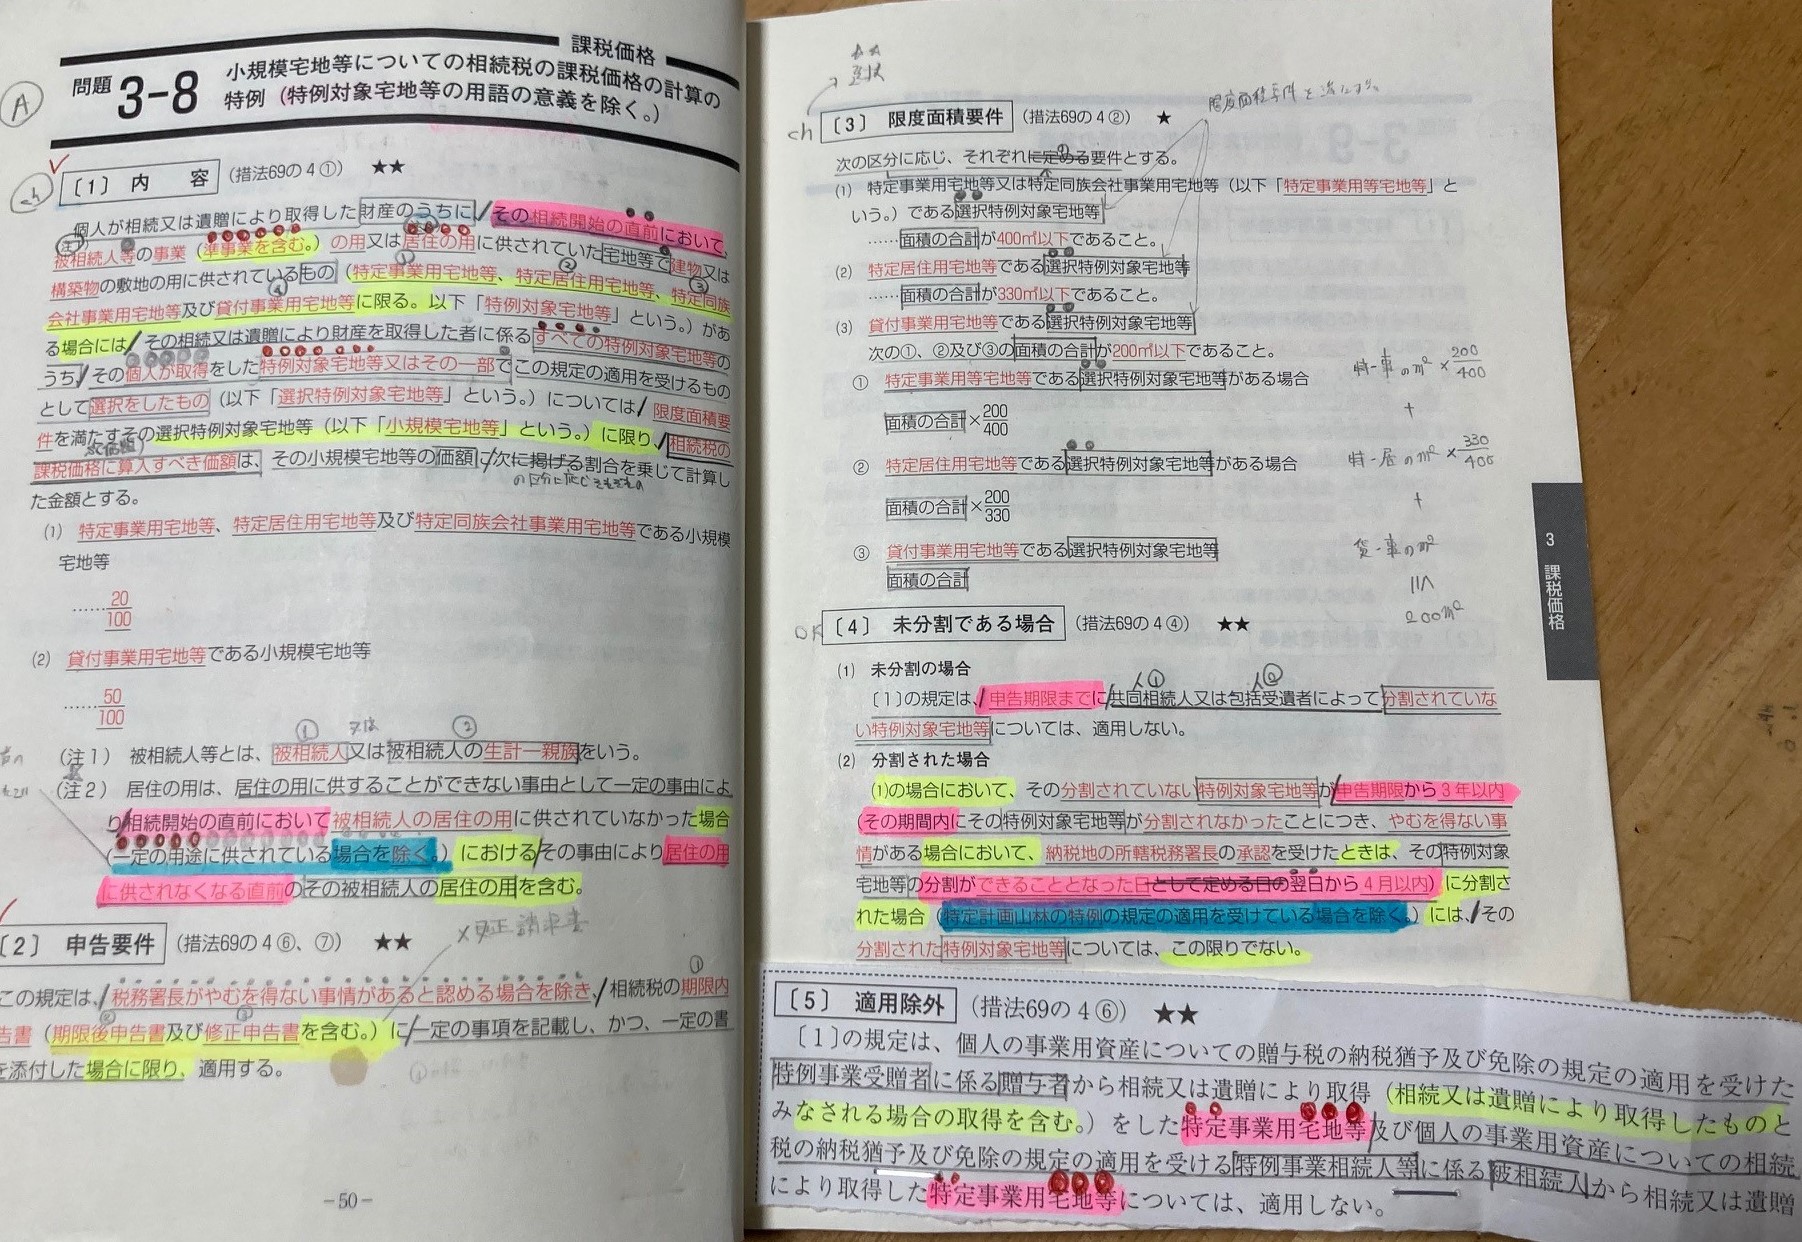 課税価格
問題 3-8 小規模宅地等についての相続税の課税価格の計算の
特例（特例対象宅地等の用語の意義を除く。）
A
ch
〔1〕 内 容 （措法69の4①） ★★
個人が相続又は遺贈により取得した財産のうちに、その相続開始の直前において、
注
被相続人等の事業（準事業を含む。）の用又は居住の用に供されていた宅地等で建物又は
① ② ③
構築物の敷地の用に供されているもの（特定事業用宅地等、特定居住用宅地等、特定同族
④
会社事業用宅地等及び貸付事業用宅地等に限る。以下「特例対象宅地等」という。）があ
る場合には、その相続又は遺贈により財産を取得した者に係るすべての特例対象宅地等の
うち、その個人が取得をした特例対象宅地等又はその一部でこの規定の適用を受けるもの
として選択をしたもの（以下「選択特例対象宅地等」という。）については、限度面積要
件を満たすその選択特例対象宅地等（以下「小規模宅地等」という。）に限り、相続税の
課税価格に算入すべき価額は、その小規模宅地等の価額に次に掲げる割合を乗じて計算し
の区分に応じそれぞれの
た金額とする。
(1) 特定事業用宅地等、特定居住用宅地等及び特定同族会社事業用宅地等である小規模
宅地等
……20/100
(2) 貸付事業用宅地等である小規模宅地等
……50/100
① 又は ②
（注1） 被相続人等とは、被相続人又は被相続人の生計一親族をいう。
（注2） 居住の用は、居住の用に供することができない事由として一定の事由によ
り相続開始の直前において被相続人の居住の用に供されていなかった場合
（一定の用途に供されている場合を除く。）における その事由により居住の用
に供されなくなる直前のその被相続人の居住の用を含む。
×更正請求書
〔2〕 申告要件 （措法69の4⑥、⑦） ★★
①
この規定は、税務署長がやむを得ない事情があると認める場合を除き、相続税の期限内
② ③
告書（期限後申告書及び修正申告書を含む。）に 一定の事項を記載し、かつ、一定の書
を添付した場合に限り、適用する。
－50－
選択
限度面積要件を満たす。
ch
〔3〕 限度面積要件 （措法69の4②） ★
次の区分に応じ、それぞれに定める要件とする。
(1) 特定事業用宅地等又は特定同族会社事業用宅地等（以下「特定事業用等宅地等」と
いう。）である選択特例対象宅地等
……面積の合計が400㎡以下であること。
(2) 特定居住用宅地等である選択特例対象宅地等
……面積の合計が330㎡以下であること。
(3) 貸付事業用宅地等である選択特例対象宅地等
次の①、②及び③の面積の合計が200㎡以下であること。
① 特定事業用等宅地等である選択特例対象宅地等がある場合
面積の合計×200/400
② 特定居住用宅地等である選択特例対象宅地等がある場合
面積の合計×200/330
③ 貸付事業用宅地等である選択特例対象宅地等
面積の合計
特-事のm²×200/400
+
特-居のm²×330/400
+
貸-事のm²
200m²
3 課税価格
OK
〔4〕 未分割である場合 （措法69の4④） ★★
(1) 未分割の場合
人① 人②
〔1〕の規定は、申告期限までに共同相続人又は包括受遺者によって分割されていな
い特例対象宅地等については、適用しない。
(2) 分割された場合
(1)の場合において、その分割されていない特例対象宅地等が申告期限から3年以内
（その期間内にその特例対象宅地等が分割されなかったことにつき、やむを得ない事
情がある場合において、納税地の所轄税務署長の承認を受けたときは、その特例対象
宅地等の分割ができることとなった日として定める日の翌日から4月以内）に分割さ
れた場合（特定計画山林の特例の規定の適用を受けている場合を除く。）には、その
分割された特例対象宅地等については、この限りでない。
〔5〕 適用除外 （措法69の4⑥） ★★
〔1〕の規定は、個人の事業用資産についての贈与税の納税猶予及び免除の規定の適用を受けた
特例事業受贈者に係る贈与者から相続又は遺贈により取得（相続又は遺贈により取得したものと
みなされる場合の取得を含む。）をした特定事業用宅地等及び個人の事業用資産についての相続
税の納税猶予及び免除の規定の適用を受ける特例事業相続人等に係る被相続人から相続又は遺贈
により取得した特定事業用宅地等については、適用しない。